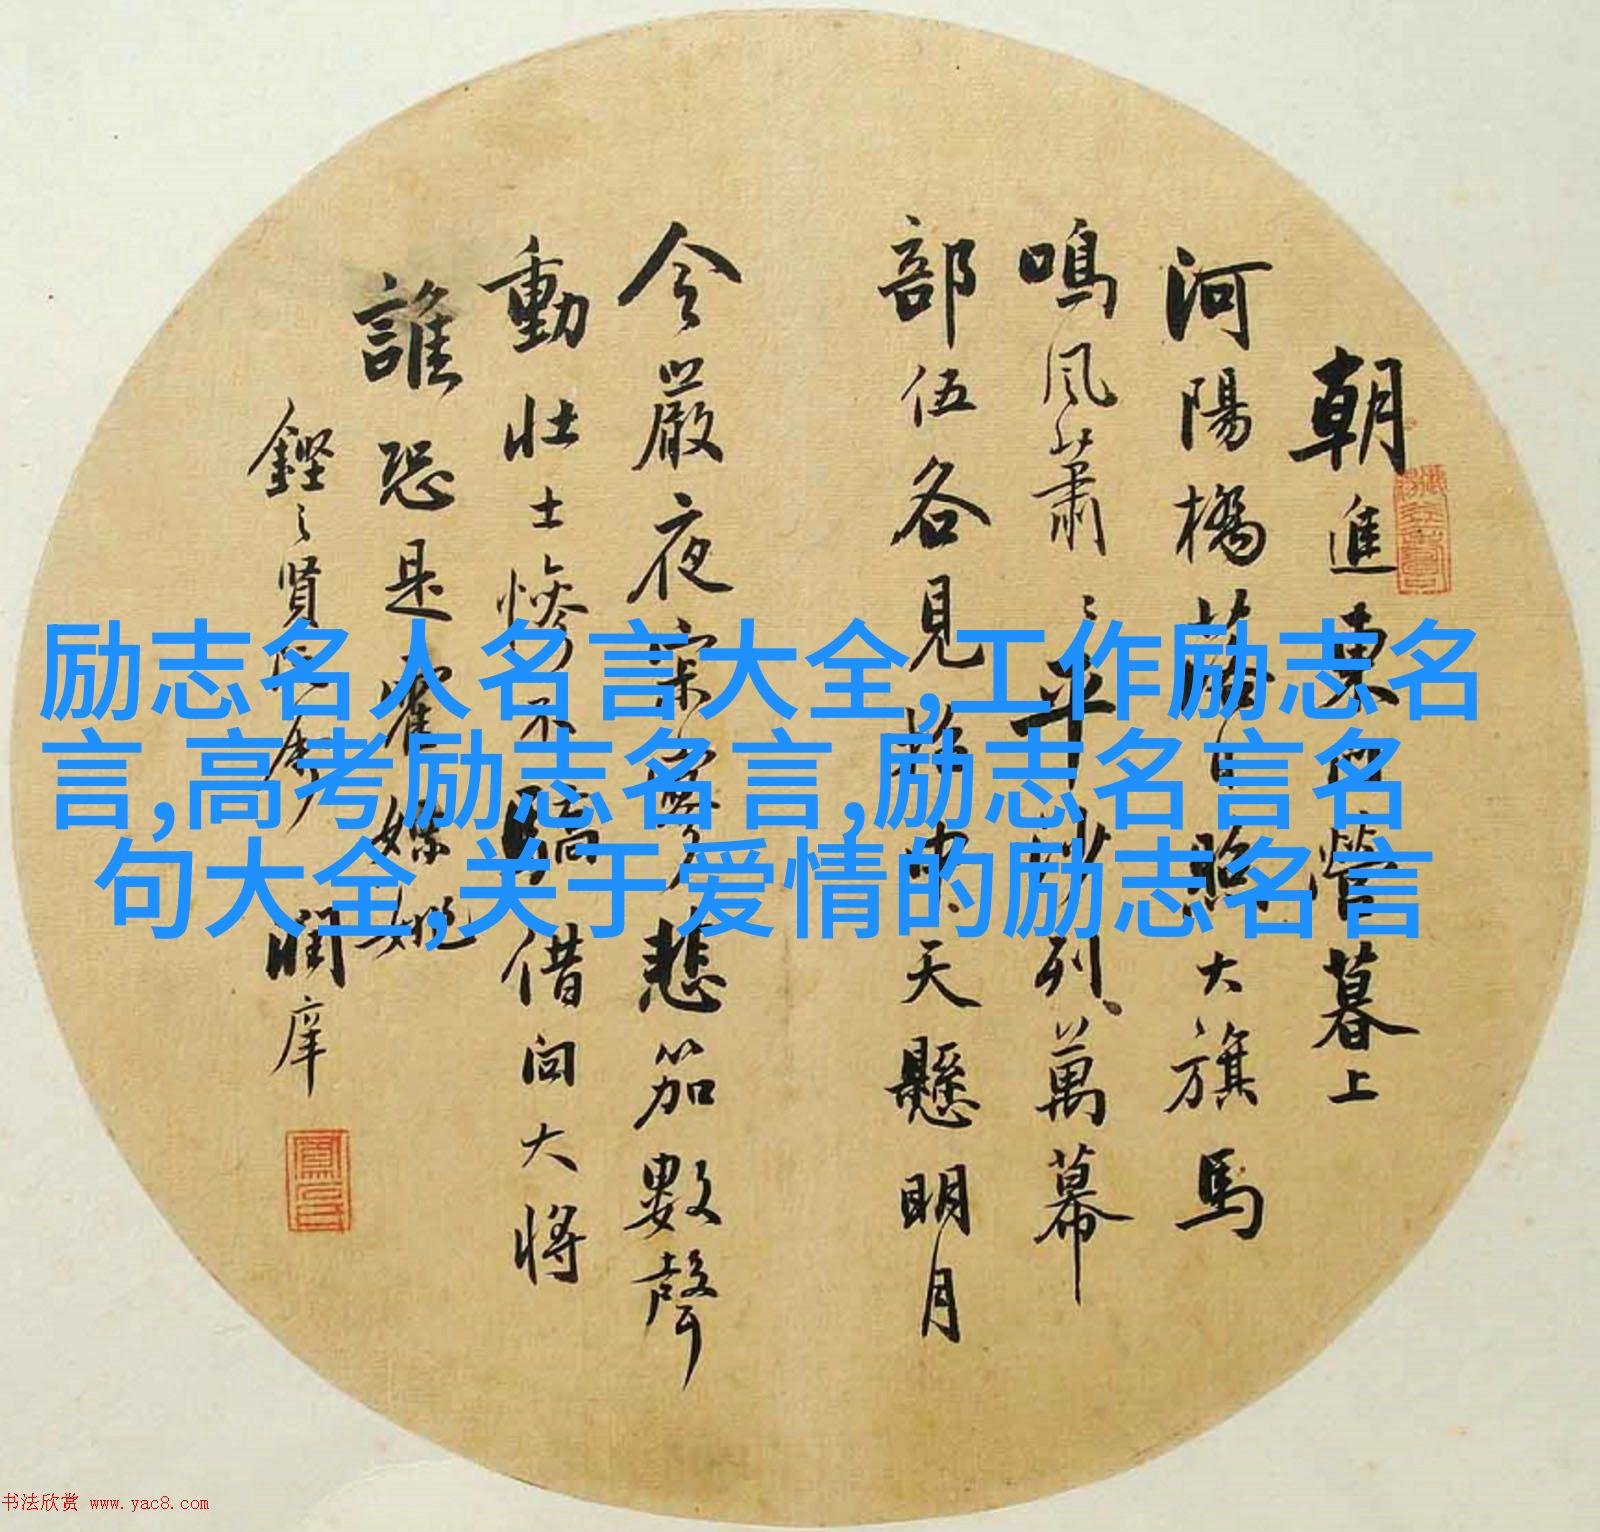 朝進東門營暮上
河陽橋落日照大旗馬
鳴風蕭〻平沙列萬幕
部伍各見招中天懸明月
令嚴夜寂寥悲笳數聲
動壯士慘不驕借问大將
誰恐是霍嫖姚
鏗〻賢
潤庠
励志名人名言大全,工作励志名
言,高考励志名言,励志名言名
句大全,关于爱情的励志名言
书法欣赏 www.yac8.com